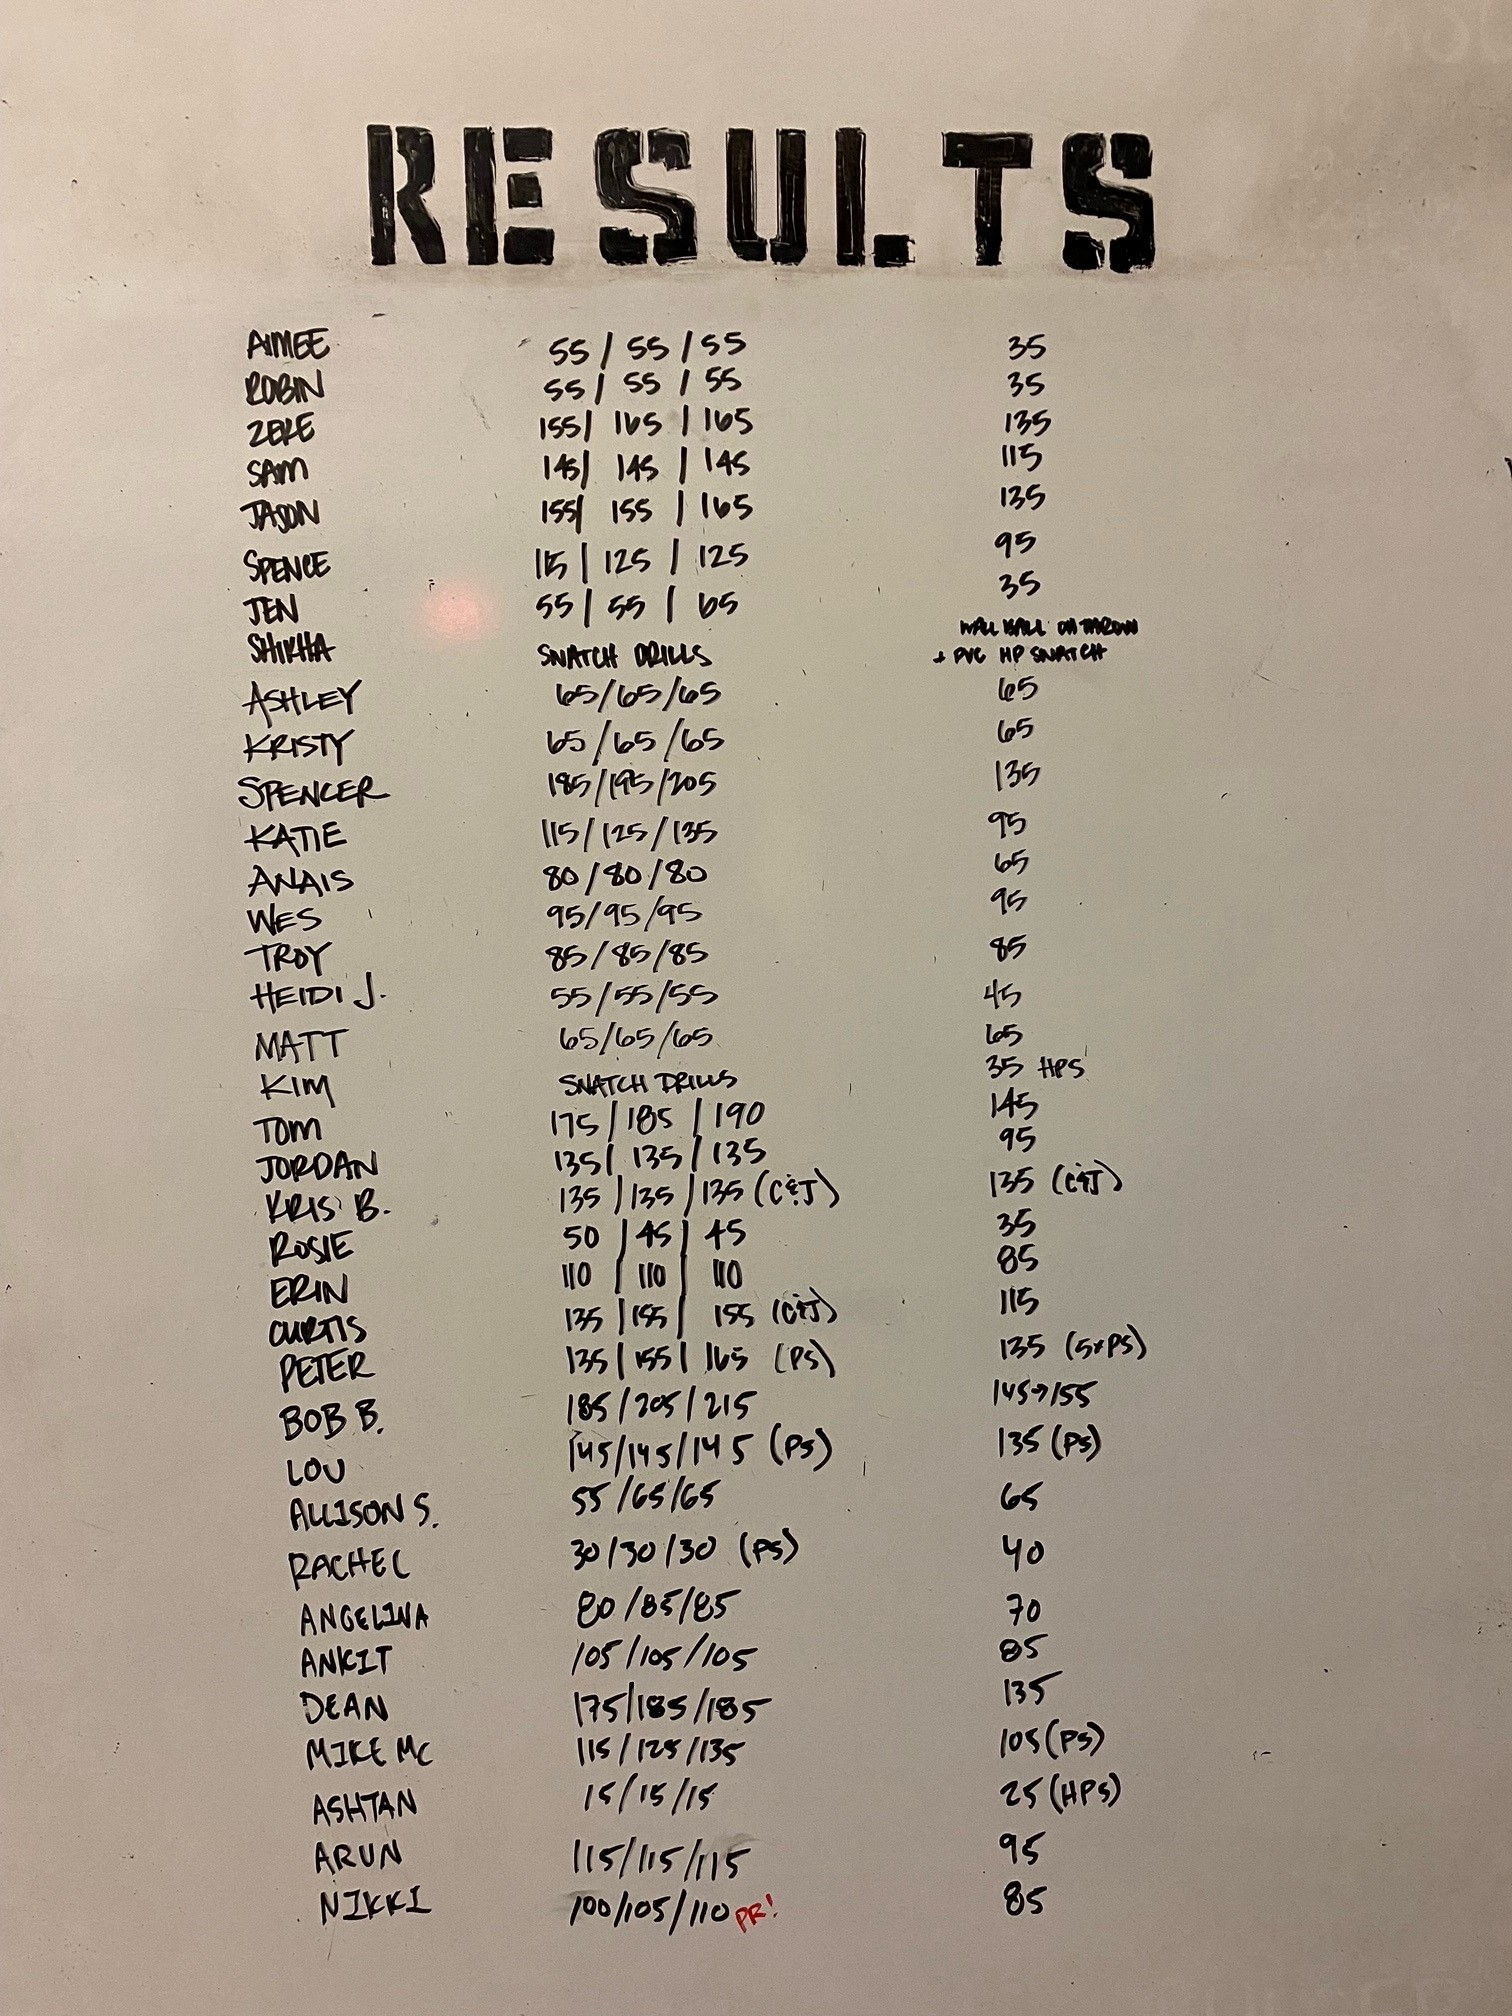 RESULTS
AIMEE 55 / 55 / 55 35
ROBIN 55 / 55 / 55 35
ZEKE 155 / 165 / 165 135
SAM 145 / 145 / 145 115
JASON 155 / 155 / 165 135
SPENCE 115 / 125 / 125 95
JEN 55 / 55 / 65 35
WALL BALL OH THROW
SHIKHA SNATCH DRILLS + PVC HP SNATCH
ASHLEY 65/65/65 65
KRISTY 65/65/65 65
SPENCER 185/195/205 135
KATIE 115/125/135 95
ANAIS 80/80/80 65
WES 95/95/95 95
TROY 85/85/85 85
HEIDI J. 55/55/55 45
MATT 65/65/65 65
KIM SNATCH DRILLS 35 HPS
TOM 175 / 185 / 190 145
JORDAN 135 / 135 / 135 95
KRIS B. 135 / 135 / 135 (C&J) 135 (C&J)
ROSIE 50 / 45 / 45 35
ERIN 110 / 110 / 110 85
CURTIS 135 / 155 / 155 (C&J) 115
PETER 135 / 155 / 165 (PS) 135 (5xPS)
BOB B. 185/205/215 145→155
LOU 145/145/145 (PS) 135 (PS)
ALLISON S. 55/65/65 65
RACHEL 30/30/30 (PS) 40
ANGELINA 80/85/85 70
ANKIT 105/105/105 85
DEAN 175/185/185 135
MIKE MC 115/125/135 105 (PS)
ASHTAN 15/15/15 25 (HPS)
ARUN 115/115/115 95
NIKKI 100/105/110 PR! 85